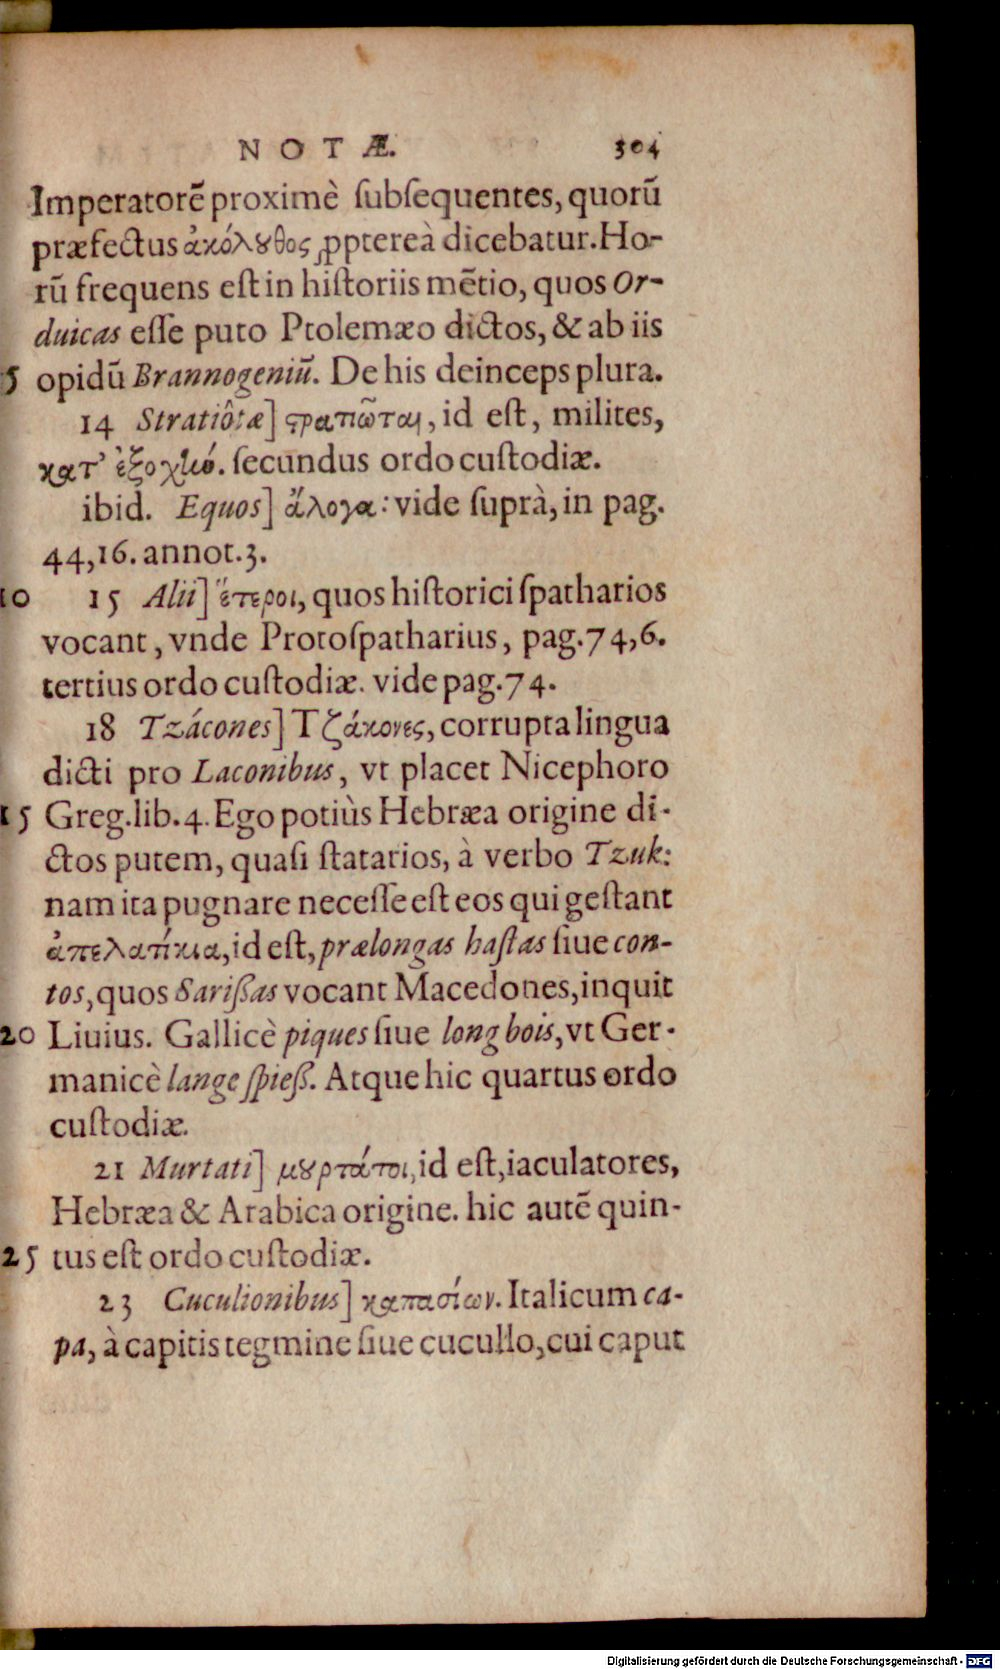 NOTÆ. 304
Imperatorē proximè ſubſequentes, quorũ
præfectus ἀκόλȣθος ꝓptereà dicebatur. Ho-
rũ frequens eſt in hiſtoriis mētio, quos Or-
duicas eſſe puto Ptolemæo dictos, & ab iis
5 opidũ Brannogeniũ. De his deinceps plura.
14 Stratiôtæ] ϛρατιῶται, id eſt, milites,
κατ' ἐξοχὴν. ſecundus ordo cuſtodiæ.
ibid. Equos] ἄλογα: vide ſuprà, in pag.
44,16. annot.3.
10 15 Alii] ἕτεροι, quos hiſtorici ſpatharios
vocant, vnde Protoſpatharius, pag.74,6.
tertius ordo cuſtodiæ. vide pag.74.
18 Tzácones] Τζάκονες, corrupta lingua
dicti pro Laconibus, vt placet Nicephoro
15 Greg. lib. 4. Ego potiùs Hebræa origine di-
ctos putem, quaſi ſtatarios, à verbo Tzuk:
nam ita pugnare neceſſe eſt eos qui geſtant
ἀπελατίκια, id eſt, prælongas haſtas ſiue con-
tos, quos Sarißas vocant Macedones, inquit
20 Liuius. Gallicè piques ſiue long bois, vt Ger-
manicè lange ſpieß. Atque hic quartus ordo
cuſtodiæ.
21 Murtati] μȣρτάτοι, id eſt, iaculatores,
Hebræa & Arabica origine. hic autē quin-
25 tus eſt ordo cuſtodiæ.
23 Cuculionibus] καπασίων. Italicum ca-
pa, à capitis tegmine ſiue cucullo, cui caput
Digitalisierung gefördert durch die Deutsche Forschungsgemeinschaft - DFG